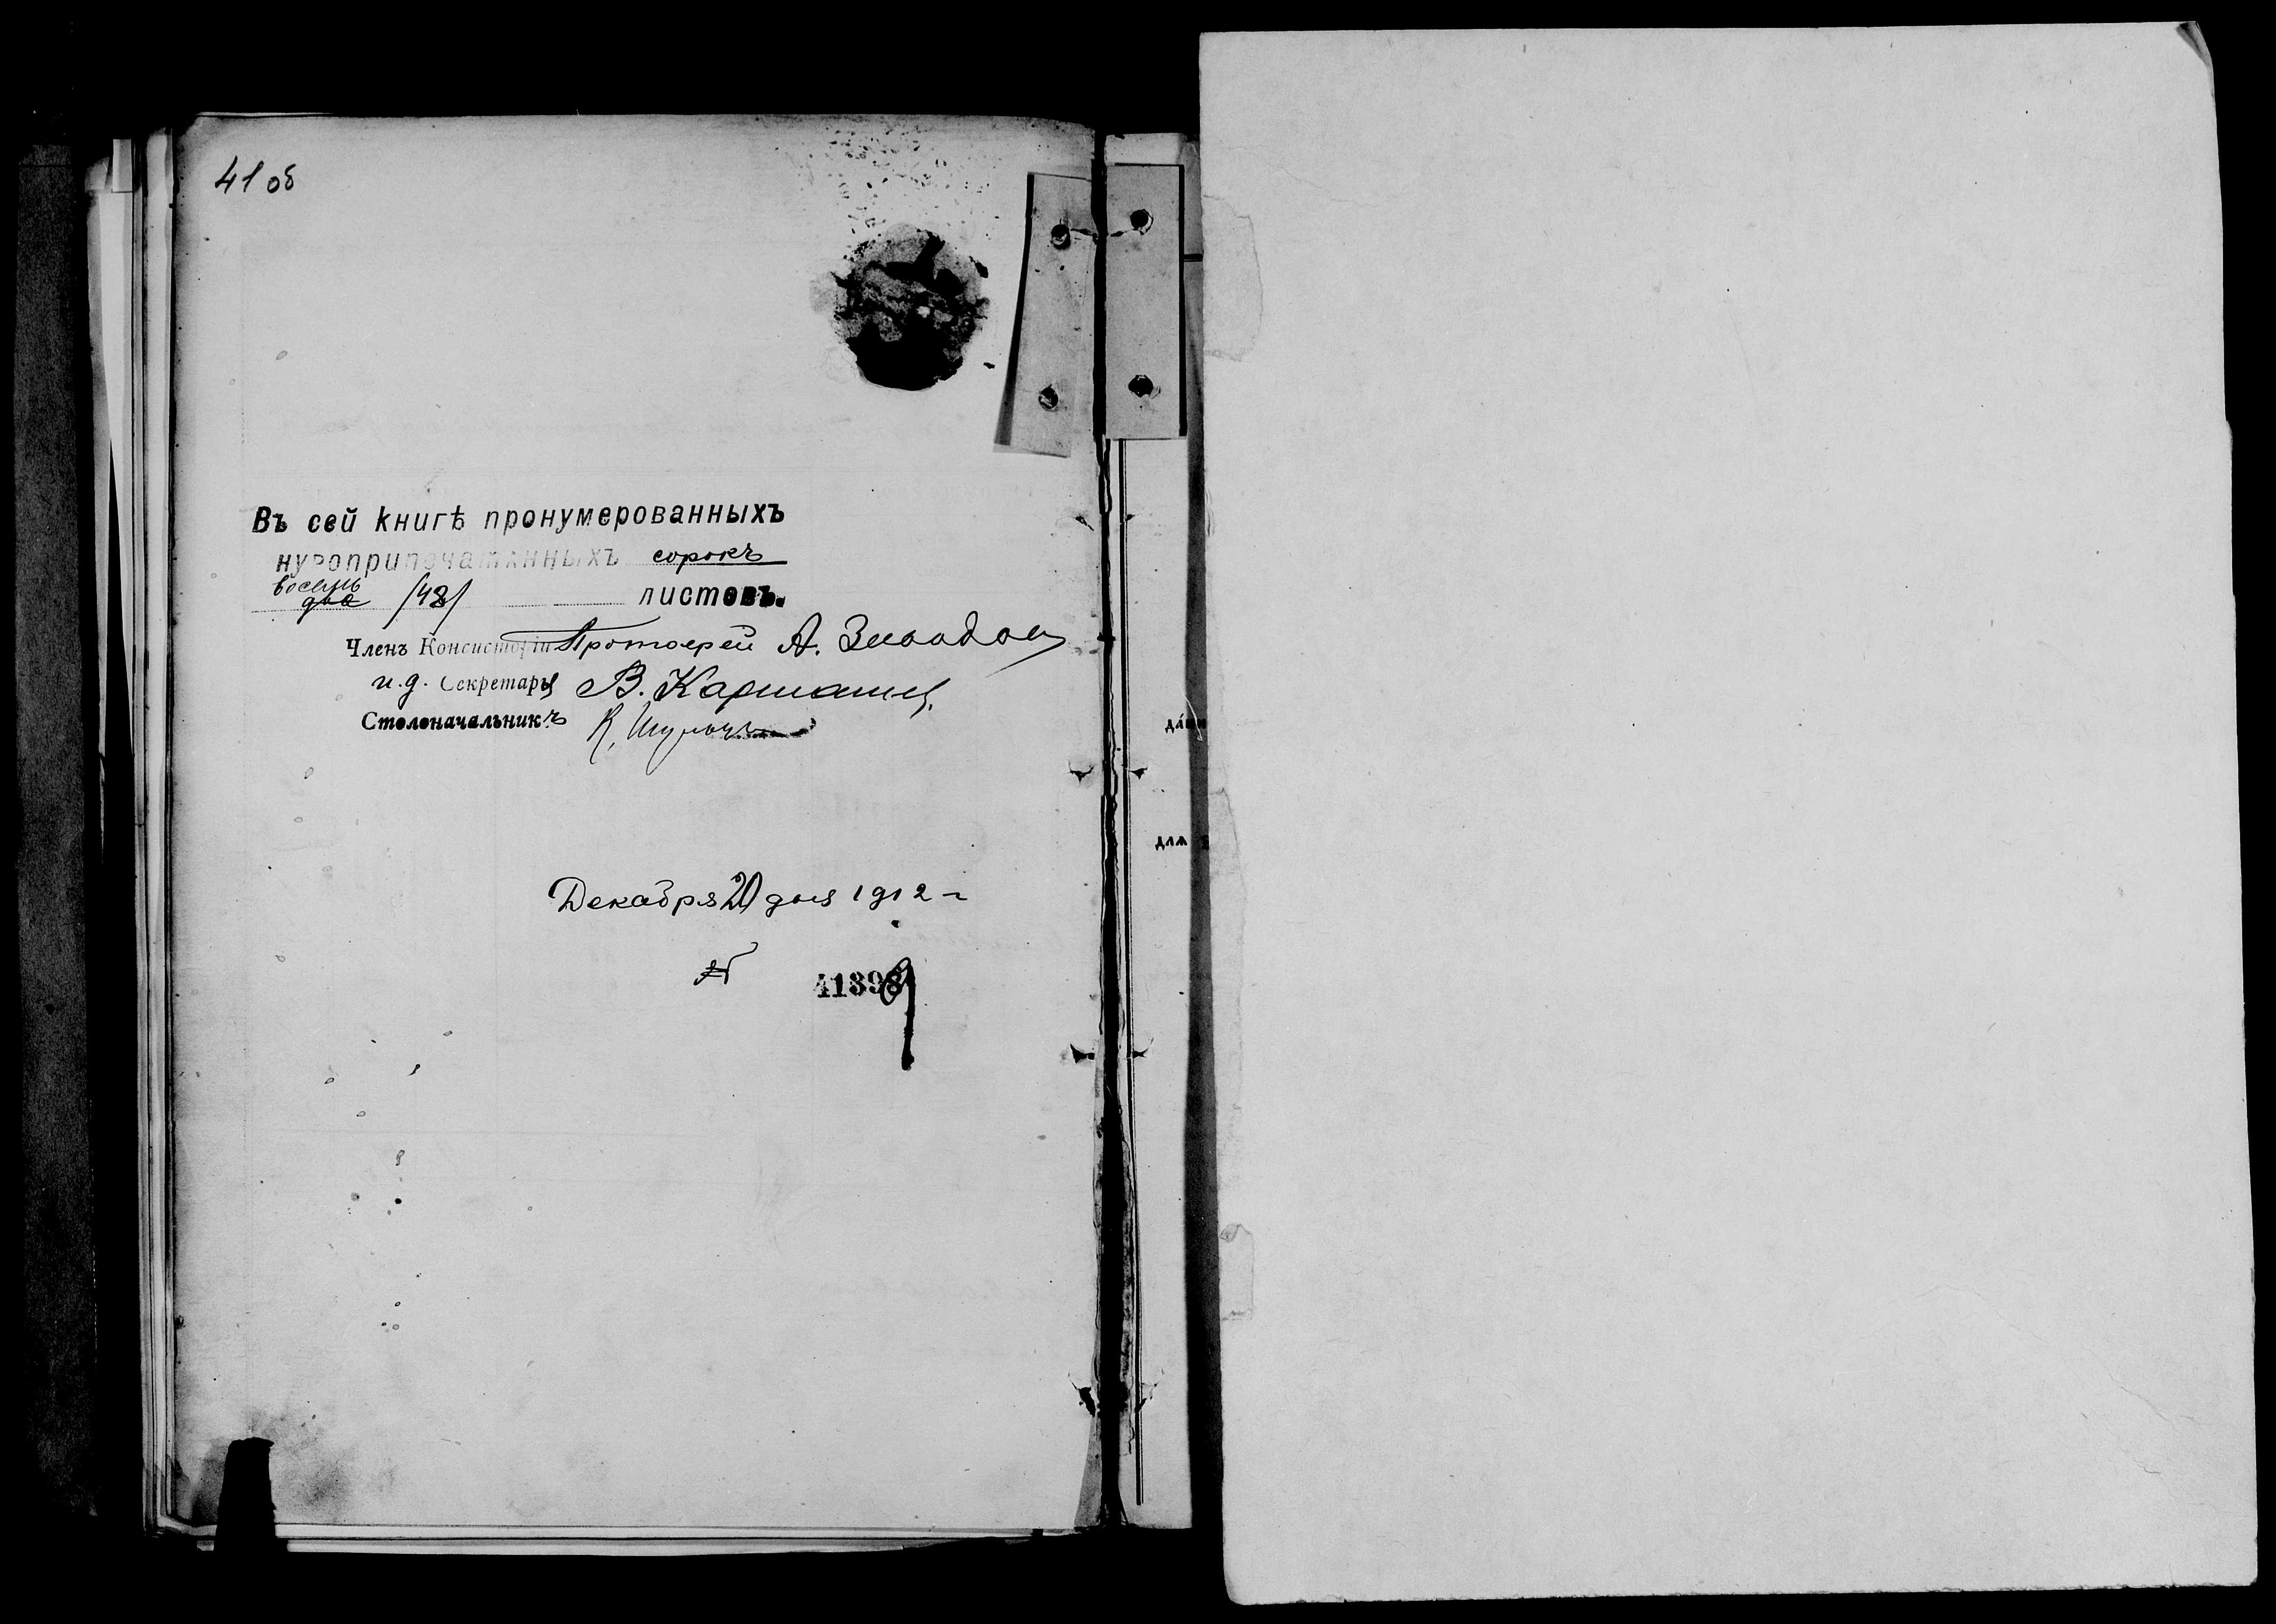 41 об
Въ сей книгѣ пронумерованныхъ
шнуроприпечатанныхъ сорокъ
восемь
два /48/ листовъ.
Членъ Консисторіи Протоіерей А.
и.д. Секретаря В.
Столоначальникъ К.
Декабря 20 дня 1912 г
№ 41398
для